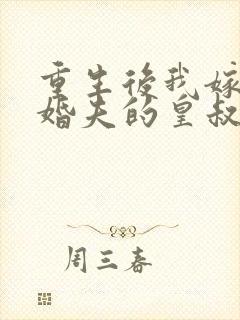 重生後我嫁
婚夫的皇叔
周三春